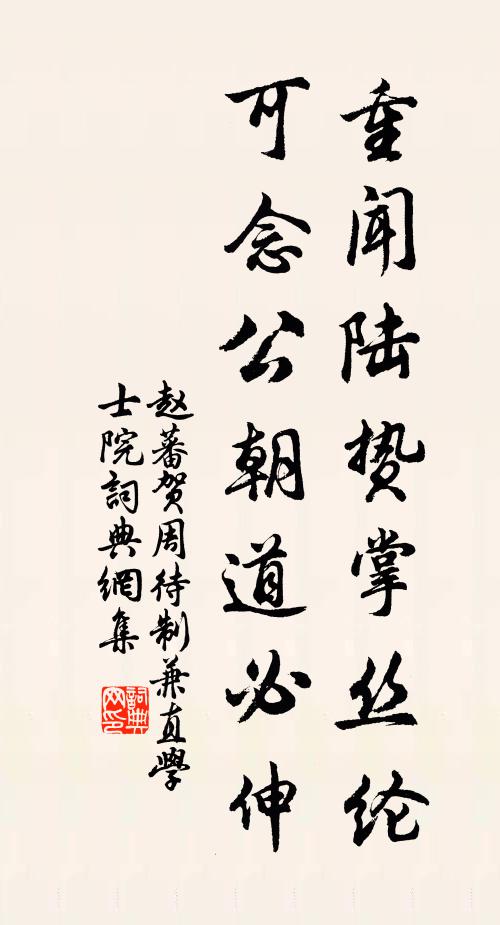 重闻陆贽掌丝纶
可念公朝道必伸
赵蕃贺周待制兼直学
士院詞典網集
詞典网印